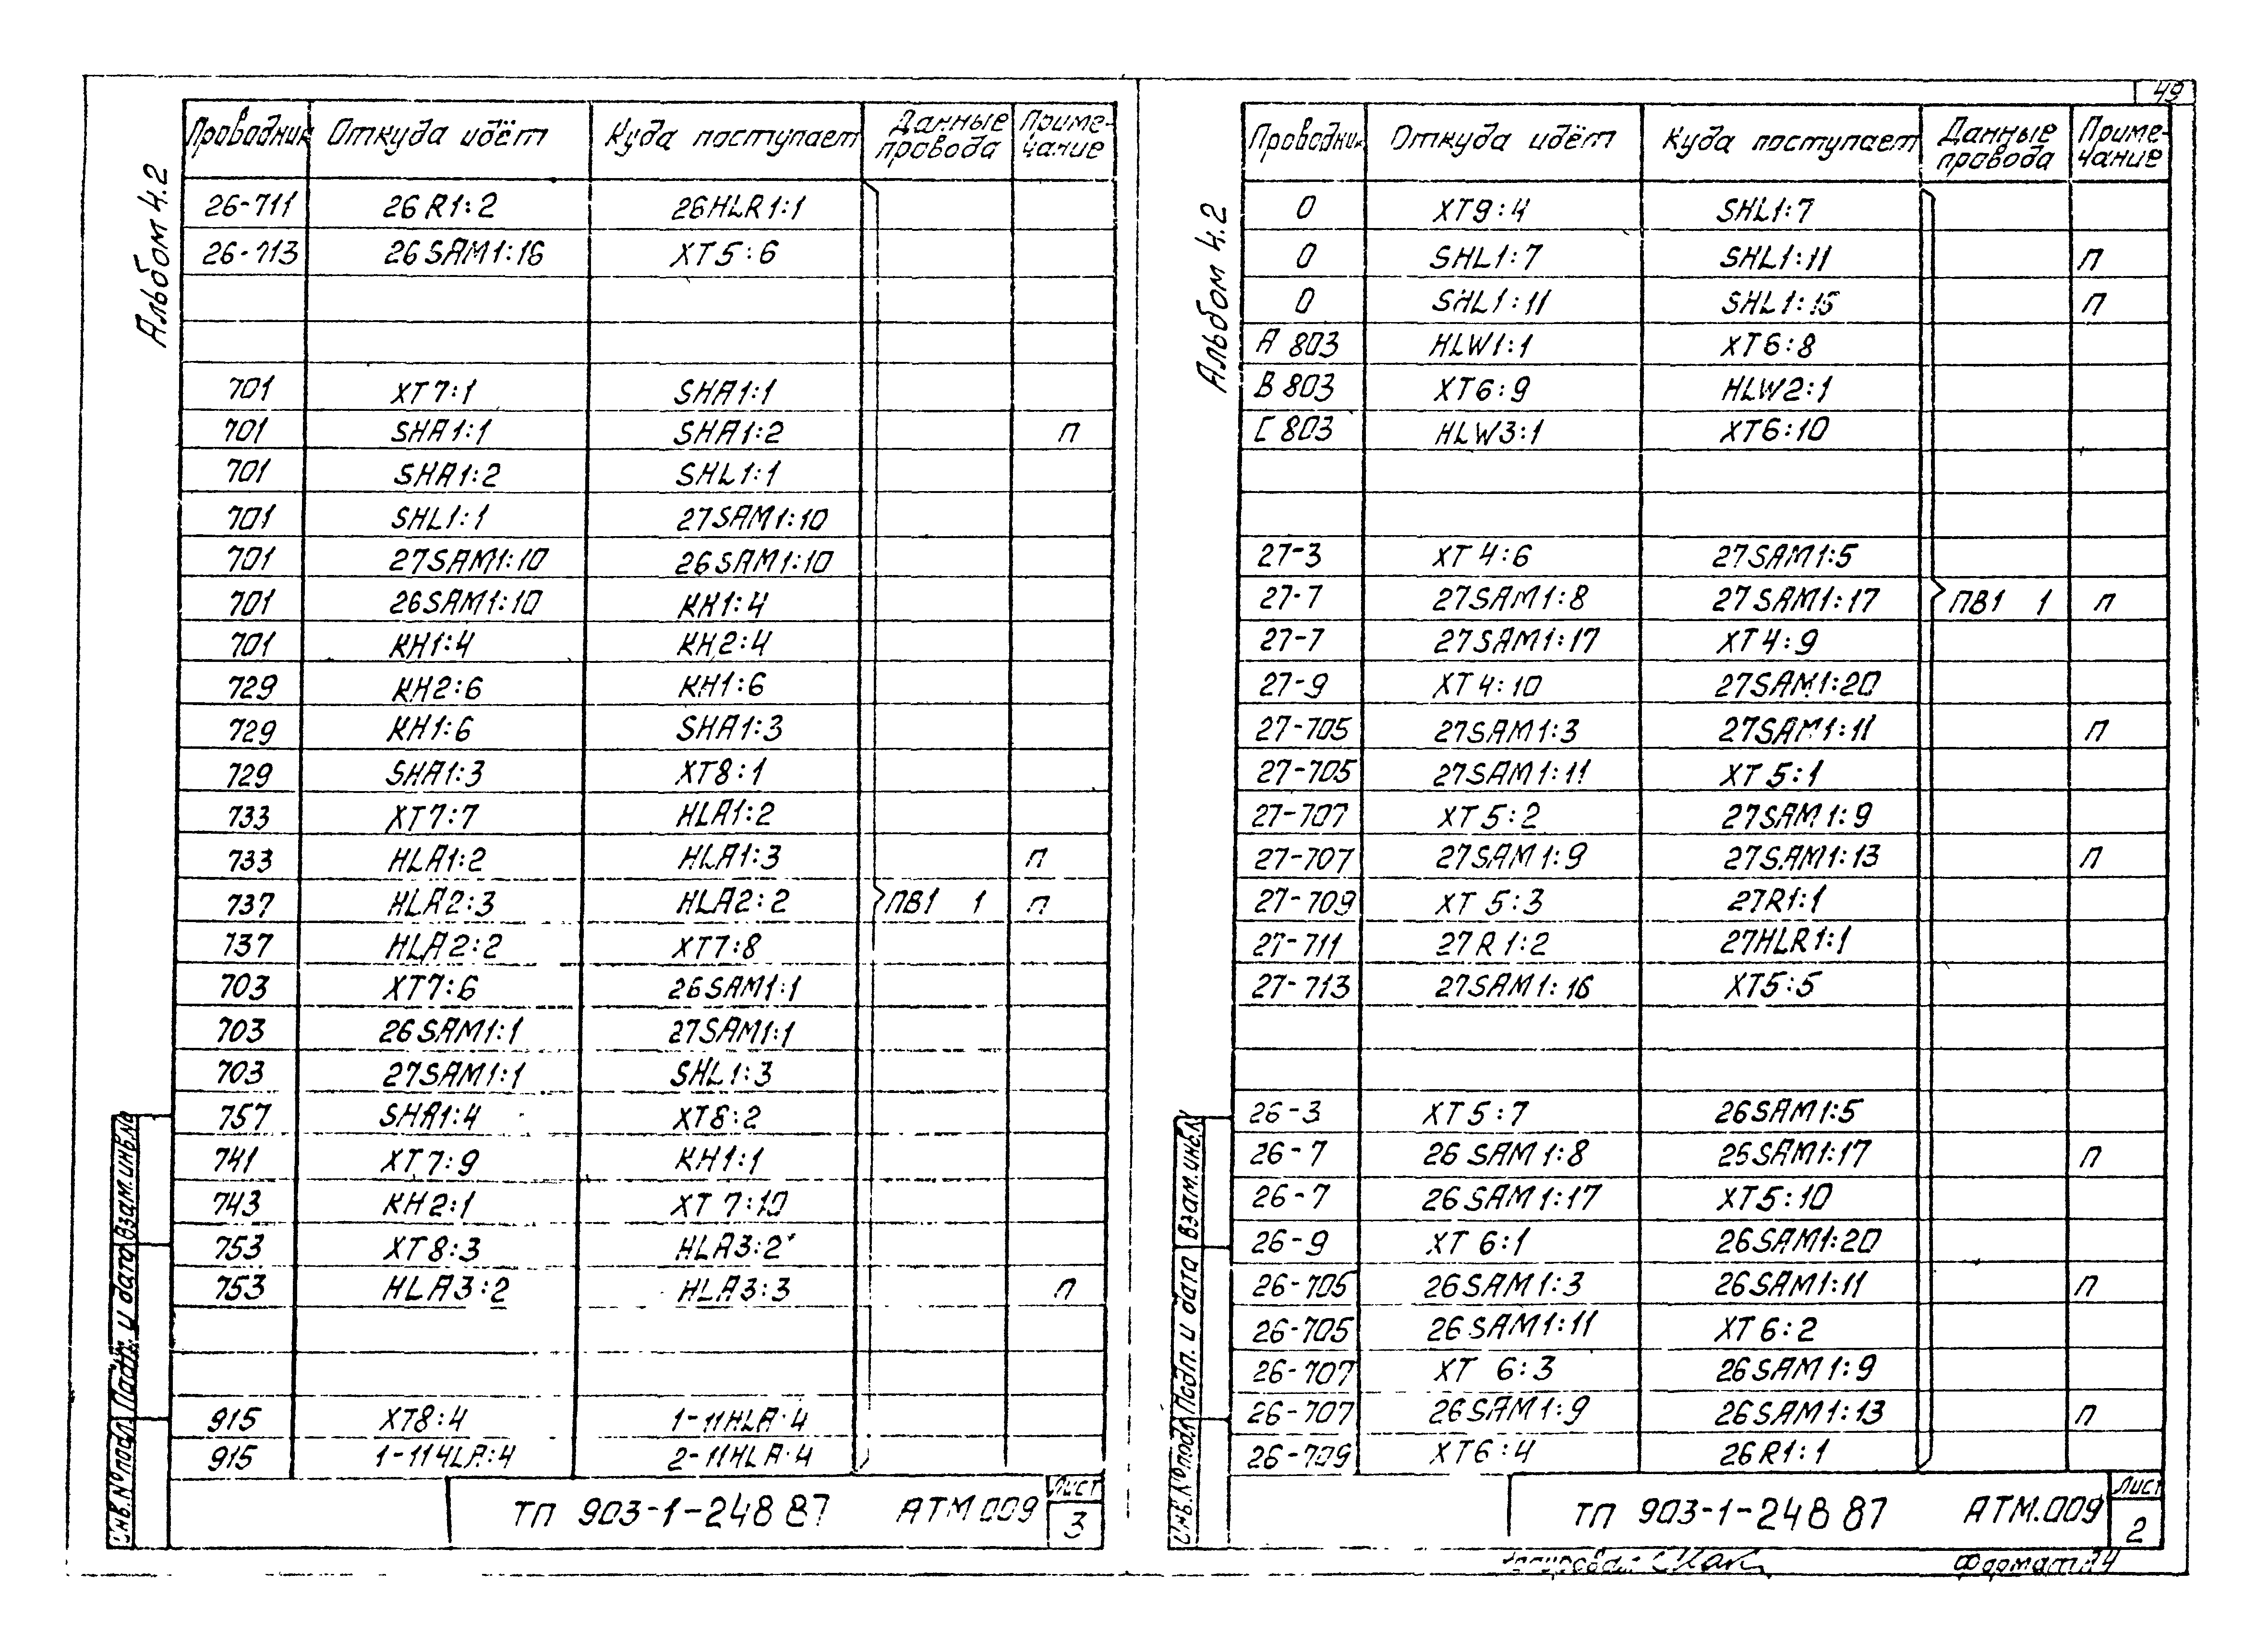 Альбом 4.2
Проводник Откуда идёт Куда поступает Данные провода Приме-чание
26-711 26R1:2 26HLR1:1
26-713 26SAM1:16 XT5:6
701 XT7:1 SHA1:1
701 SHA1:1 SHA1:2 п
701 SHA1:2 SHL1:1
701 SHL1:1 27SAM1:10
701 27SAM1:10 26SAM1:10
701 26SAM1:10 KH1:4
701 KH1:4 KH2:4
729 KH2:6 KH1:6
729 KH1:6 SHA1:3
729 SHA1:3 XT8:1
733 XT7:7 HLA1:2
733 HLA1:2 HLA1:3 п
737 HLA2:3 HLA2:2 ПВ1 1 п
737 HLA2:2 XT7:8
703 XT7:6 26SAM1:1
703 26SAM1:1 27SAM1:1
703 27SAM1:1 SHL1:3
757 SHA1:4 XT8:2
741 XT7:9 KH1:1
743 KH2:1 XT7:10
753 XT8:3 HLA3:2
753 HLA3:2 HLA3:3 п
915 XT8:4 1-11HLA:4
915 1-11HLA:4 2-11HLA:4
Взам.инв.№
Подп. и дата
Инв.№ подл.
ТП 903-1-248 87 АТМ.009
Лист
3
49
Альбом 4.2
Проводник Откуда идёт Куда поступает Данные провода Приме-чание
0 XT9:4 SHL1:7
0 SHL1:7 SHL1:11 п
0 SHL1:11 SHL1:15 п
A 803 HLW1:1 XT6:8
B 803 XT6:9 HLW2:1
C 803 HLW3:1 XT6:10
27-3 XT4:6 27SAM1:5
27-7 27SAM1:8 27SAM1:17 ПВ1 1 п
27-7 27SAM1:17 XT4:9
27-9 XT4:10 27SAM1:20
27-705 27SAM1:3 27SAM1:11 п
27-705 27SAM1:11 XT5:1
27-707 XT5:2 27SAM1:9
27-707 27SAM1:9 27SAM1:13 п
27-709 XT5:3 27R1:1
27-711 27R1:2 27HLR1:1
27-713 27SAM1:16 XT5:5
26-3 XT5:7 26SAM1:5
26-7 26SAM1:8 26SAM1:17 п
26-7 26SAM1:17 XT5:10
26-9 XT6:1 26SAM1:20
26-705 26SAM1:3 26SAM1:11 п
26-705 26SAM1:11 XT6:2
26-707 XT 6:3 26SAM1:9
26-707 26SAM1:9 26SAM1:13 п
26-709 XT6:4 26R1:1
Взам.инв.№
Подп. и дата
Инв.№ подл.
ТП 903-1-248 87 АТМ.009
Лист
2
Копировал Формат А4